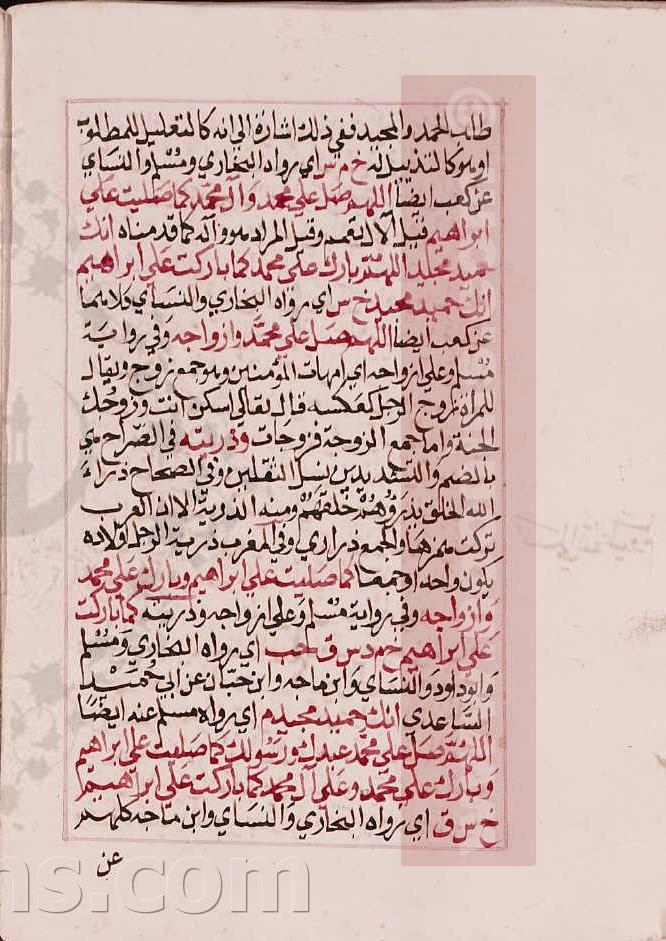 طالب الحمد والمجيد ففي ذلك اشارة الى انه كالتعليل للمطلوب
او هو كالتذييل له خ م س اي رواه البخاري ومسلم والنساي
عن كعب ايضا اللهم صل علي محمد وآل محمد كما صليت علي
ابراهيم قيل الآل مقحم وقيل المراد هو وآله كما قدمناه انك
حميد مجيد اللهم بارك على محمد كما باركت علي ابراهيم
انك حميد مجيد خ س اي رواه البخاري والنساي كلاهما
عن كعب ايضا اللهم صل علي محمد وازواجه وفي رواية
مسلم وعلي ازواجه اي امهات المؤمنين وهو جمع زوج ويقال
للمراة زوج الرجل كعكسه قال تعالي اسكن انت وزوجك
الجنة واما جمع الزوجة فزوجات وذريته في الصراح هي
بالضم والتشديد يدين نسل الثقلين وفي الصحاح ذراء
الله الخلق يذرؤهم خلقهم ومنه الذرية الا ان العرب
تركت همزها والجمع ذراري وفي المغرب ذرية الرجل اولاده
يكون واحدا وجمعا كما صليت علي ابراهيم وبارك علي محمد
وازواجه وفي رواية مسلم وعلي ازواجه وذريته كما باركت
علي ابراهيم خ م د س ق حب اي رواه البخاري ومسلم
وابوداود والنساي وابن ماجه وابن حبان عن ابي حميد
الساعدي انك حميد مجيد م اي رواه مسلم عنه ايضا
اللهم صل علي محمد عبدك ورسولك كما صليت علي ابراهيم
وبارك علي محمد وعلي آل محمد كما باركت علي ابراهيم
خ س ق اي رواه البخاري والنساي وابن ماجه كلهم
عن
ns.com